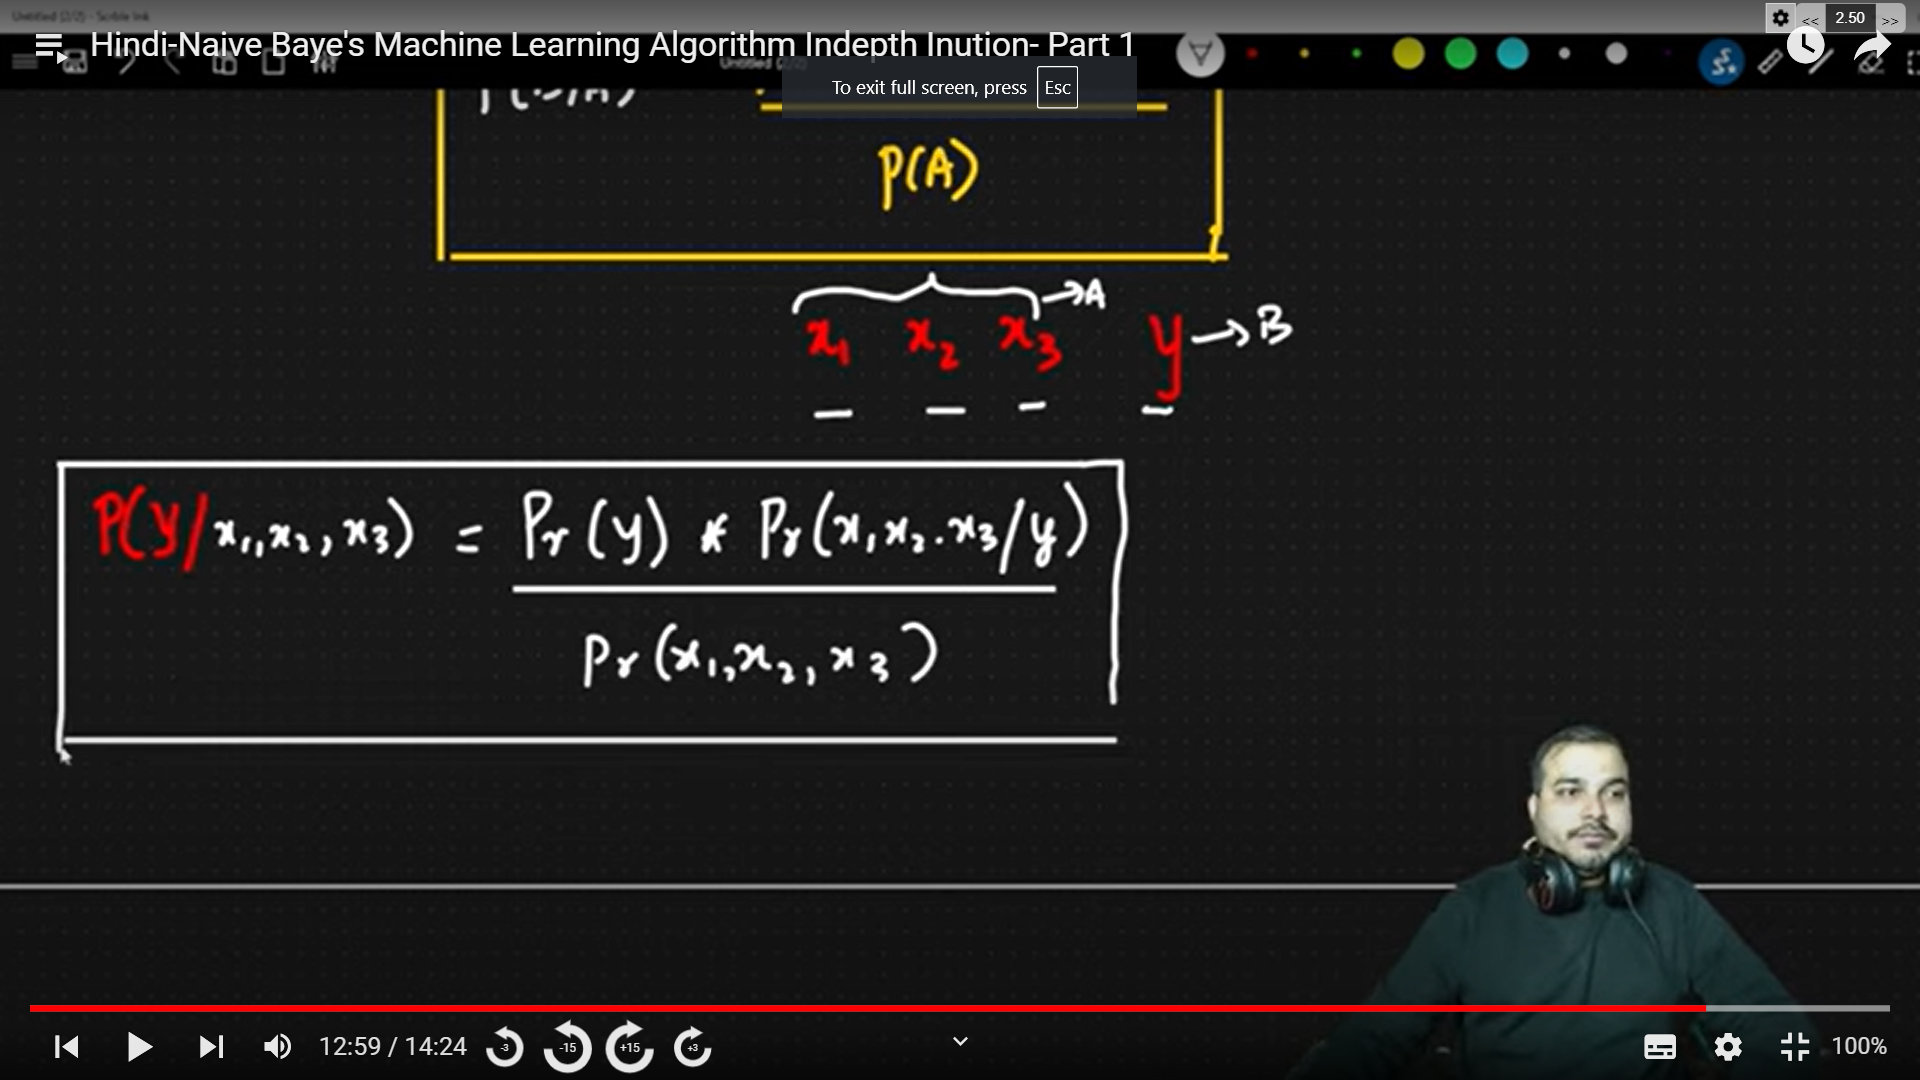 Untitled (2/2) - Scribble Ink
<< 2.50 >>
Hindi-Naive Baye's Machine Learning Algorithm Indepth Inution- Part 1
Untitled (2/2)
To exit full screen, press Esc
P(B/A)
P(A)
→A
x₁ x₂ x₃ y →B
P(y/x₁,x₂,x₃) = Pr(y) * Pr(x₁x₂.x₃/y)
Pr(x₁,x₂,x₃)
12:59 / 14:24 -3 -15 +15 +3 100%